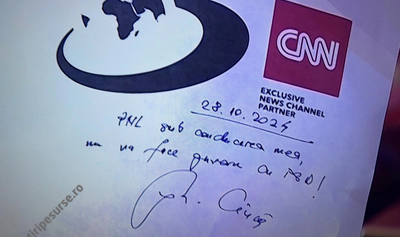 CNN
EXCLUSIVE
NEWS CHANNEL
PARTNER
28.10.2024
PNL sub conducerea mea,
nu va face guvern cu PSD!
iripesurse.ro